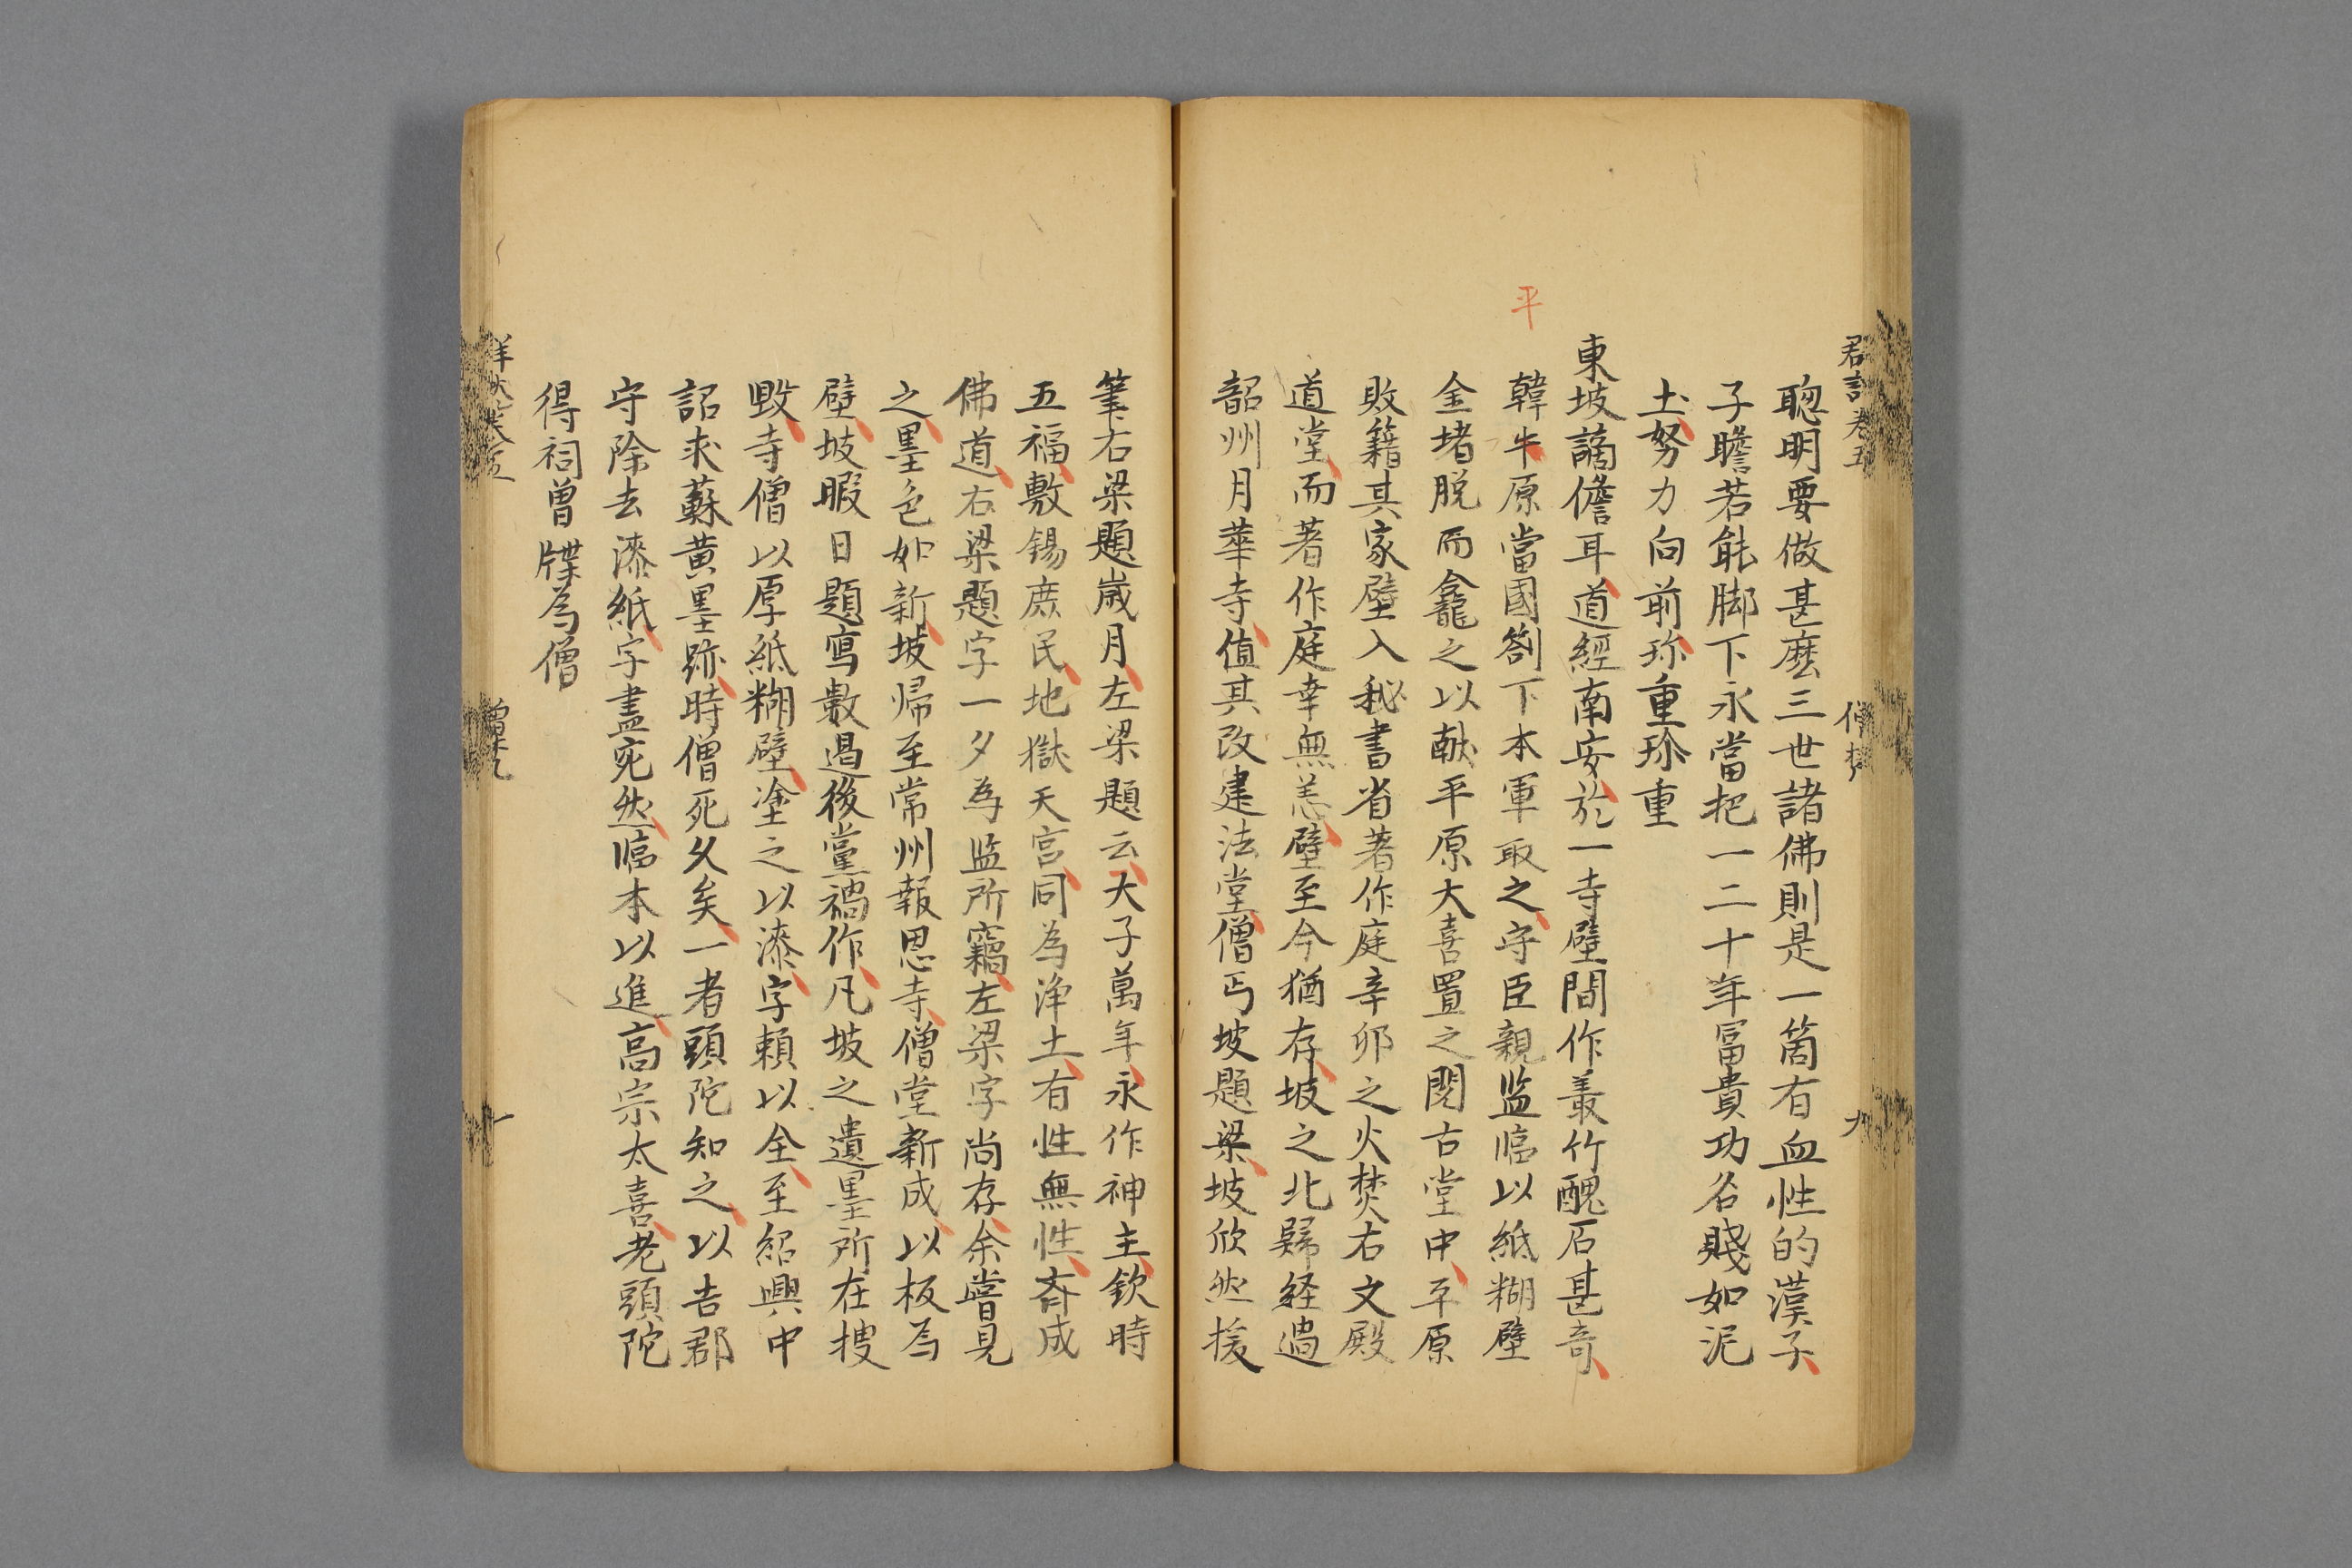 卷五
九
聰明要做甚麽三世諸佛則是一箇有血性的漢子
子瞻若能脚下永當把一二十年冨貴功名賤如泥
土努力向前珎重珎重
東坡謫儋耳道經南安於一寺壁間作叢竹醜石甚竒
平
韓牛原當國劄下本軍取之守臣親监臨以紙糊壁
全堵脱而龕之以献平原大喜置之閱古堂中平原
敗籍其家壁入秘書省著作庭辛卯之火焚右文殿
道堂而著作庭幸無恙壁至今猶存坡之北歸経過
韶州月華寺值其改建法堂僧丐坡題梁坡欣然援
筆右梁題嵗月左梁題云大子萬年永作神主歛時
五福敷錫庶民地獄天宫同為淨土有性無性斉成
佛道右梁題字一夕為监所竊左梁字尚存余嘗見
之墨色如新坡帰至常州報恩寺僧堂新成以板為
壁坡暇日題寫數過後黨禍作凡坡之遺墨所在搜
毀寺僧以厚紙糊壁塗之以漆字頼以全至紹興中
詔求蘇黄墨跡時僧死久矣一者頭陀知之以告郡
守除去漆紙字畫宛然臨本以進高宗大喜老頭陀
得祠曾牒為僧